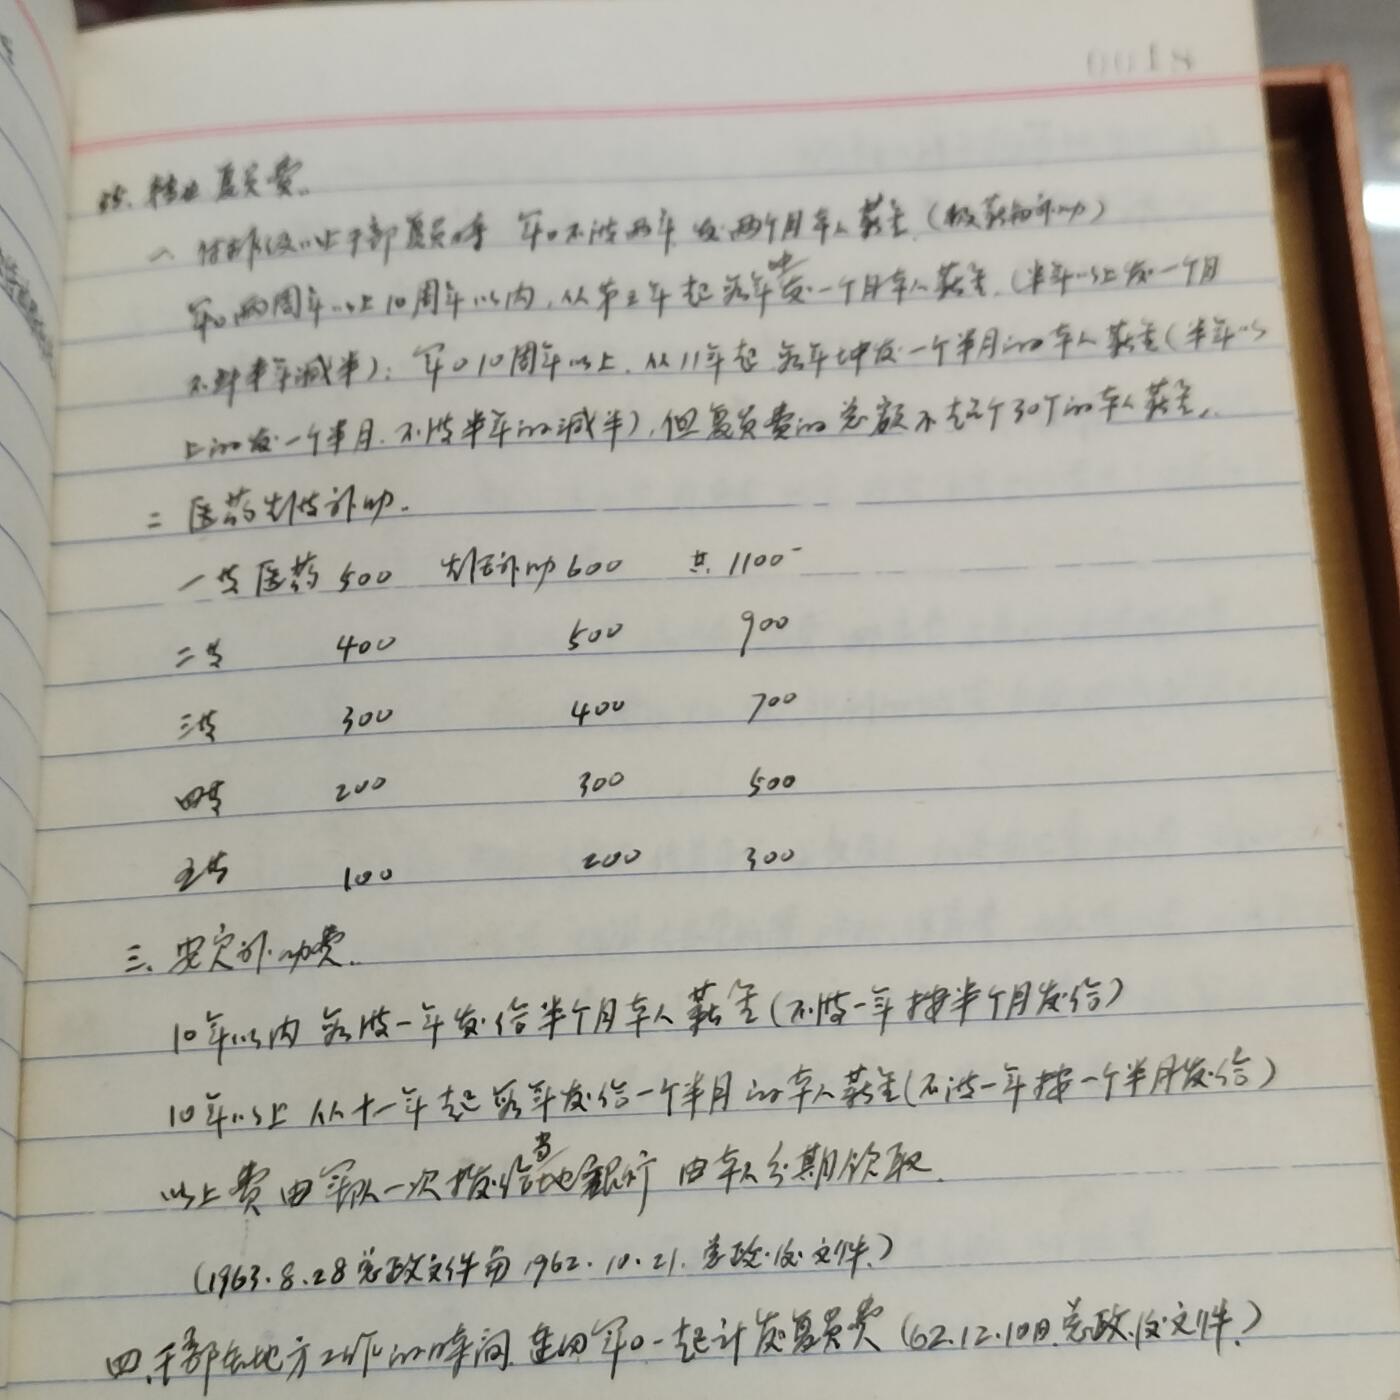 0018
转业复员费.
一、付排级以上干部复员时 军0不满两年 发两个月本人薪金.(级薪和补助)
军0两周年以上10周年以内,从第三年起每年发一个月本人薪金.(半年以上发一个月
不满半年减半);军010周年以上.从11年起每年增发一个半月的本人薪金(半年以
上的发一个半月.不满半年的减半),但复员费的总额不超过30个的本人薪金.
二 医药生活补助.
一等医药 500 生活补助 600 共.1100
二等 400 500 900
三等 300 400 700
四等 200 300 500
五等 100 200 300
三、安家补助费.
10年以内 每满一年发给半个月本人薪金(不满一年按半个月发给)
10年以上 从十一年起每年发给一个半月的本人薪金(不满一年按一个半月发给)
以上费由军队一次拨给当地银行 由本人分期领取.
(1963.8.28总政文件和1962.10.21.总政.文件.)
四、干部在地方工作的时间 连同军0一起计发复员费(62.12.10日总政.文件.)